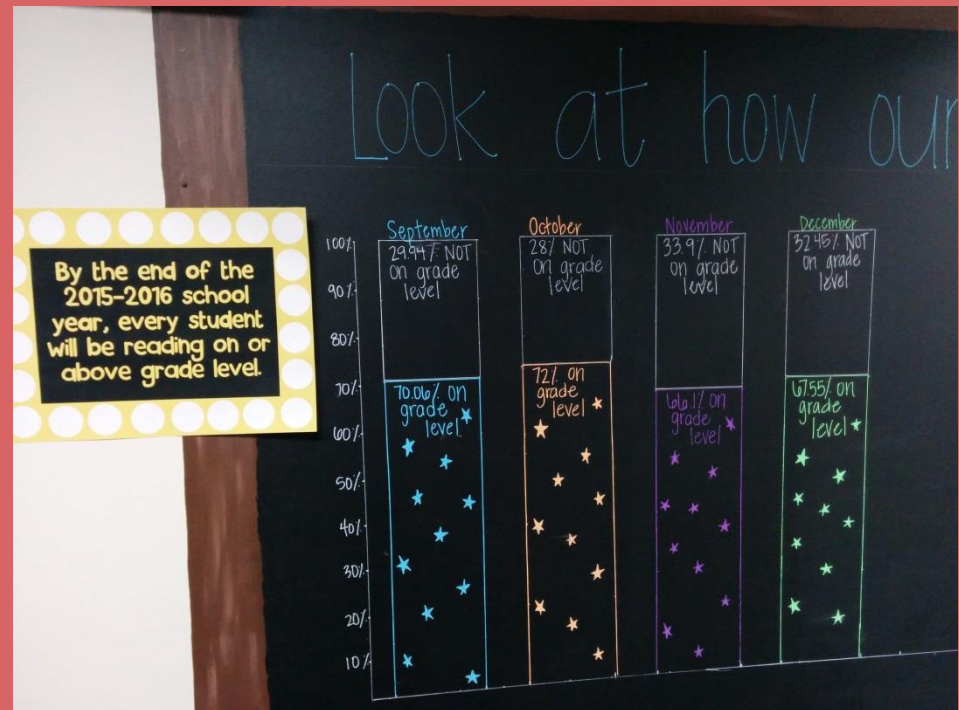 Look at how our
By the end of the
2015-2016 school
year, every student
will be reading on or
above grade level.
September
29.94% NOT
on grade
level
70.06% on
grade
level
October
28% NOT
on grade
level
72% on
grade
level
November
33.9% NOT
on grade
level
66.1% on
grade
level
December
32.45% NOT
on grade
level
67.55% on
grade
level
100%
90%
80%
70%
60%
50%
40%
30%
20%
10%